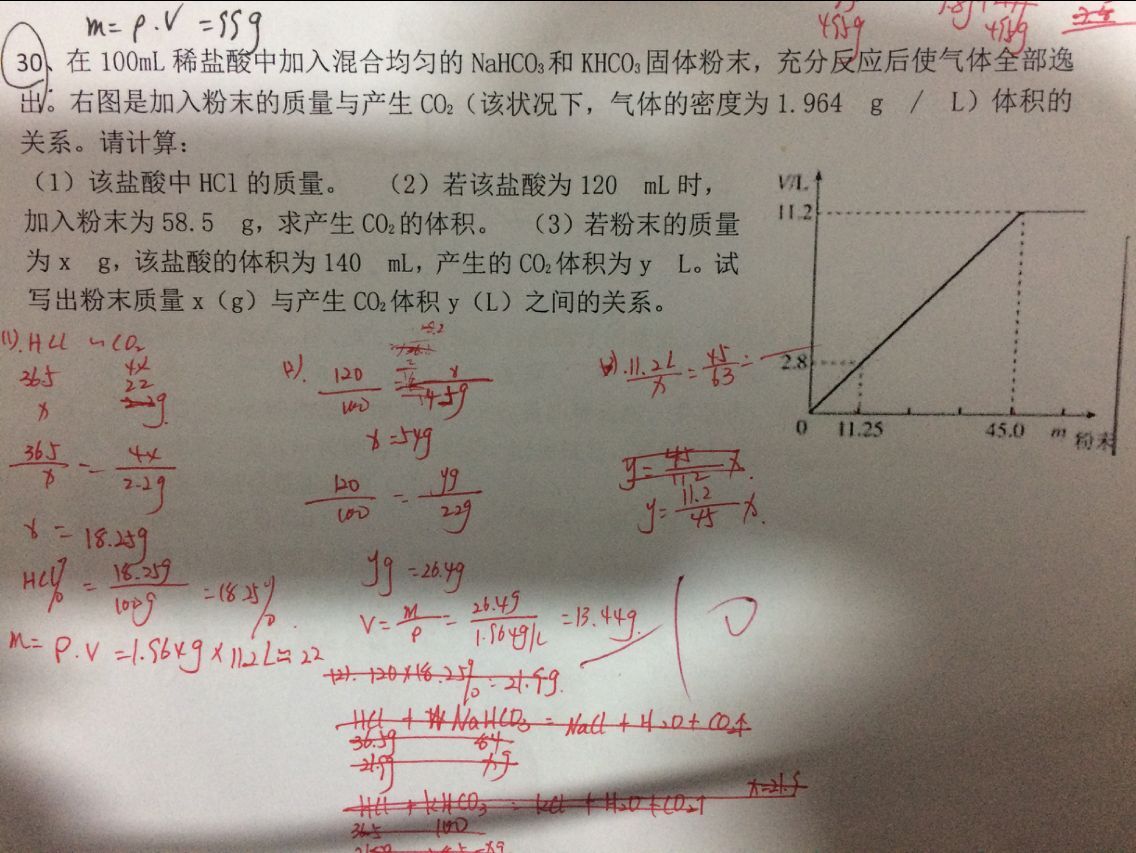 m=ρ.V=55g
455g
455g
30、在100mL稀盐酸中加入混合均匀的NaHCO₃和KHCO₃固体粉末，充分反应后使气体全部逸
出。右图是加入粉末的质量与产生CO₂（该状况下，气体的密度为1.964 g / L）体积的
关系。请计算：
（1）该盐酸中HCl的质量。 （2）若该盐酸为120 mL时，
加入粉末为58.5 g，求产生CO₂的体积。 （3）若粉末的质量
为x g，该盐酸的体积为140 mL，产生的CO₂体积为y L。试
写出粉末质量x（g）与产生CO₂体积y（L）之间的关系。
V/L
11.2
2.8
0 11.25 45.0 m 粉末
(1).HCl ~ CO₂
36.5 44
x 22g
36.5/x = 44/22g
x = 18.25g
HCl% = 18.25g/100g = 18.25%.
m= ρ.V =1.964g×11.2L=22
120/100 = x/45g
x=54g
120/100 = yg/22g
yg =26.4g
V= m/ρ = 26.4g/1.964g/L =13.44g
11.2L/x = 45/63 =
y= 45/11.2 x.
y= 11.2/45 x.
(2). 120×18.25% = 21.9g.
HCl + NaHCO₃ = NaCl + H₂O + CO₂↑
36.5g 84
21.9g xg
HCl + KHCO₃ = KCl + H₂O + CO₂↑
36.5 100